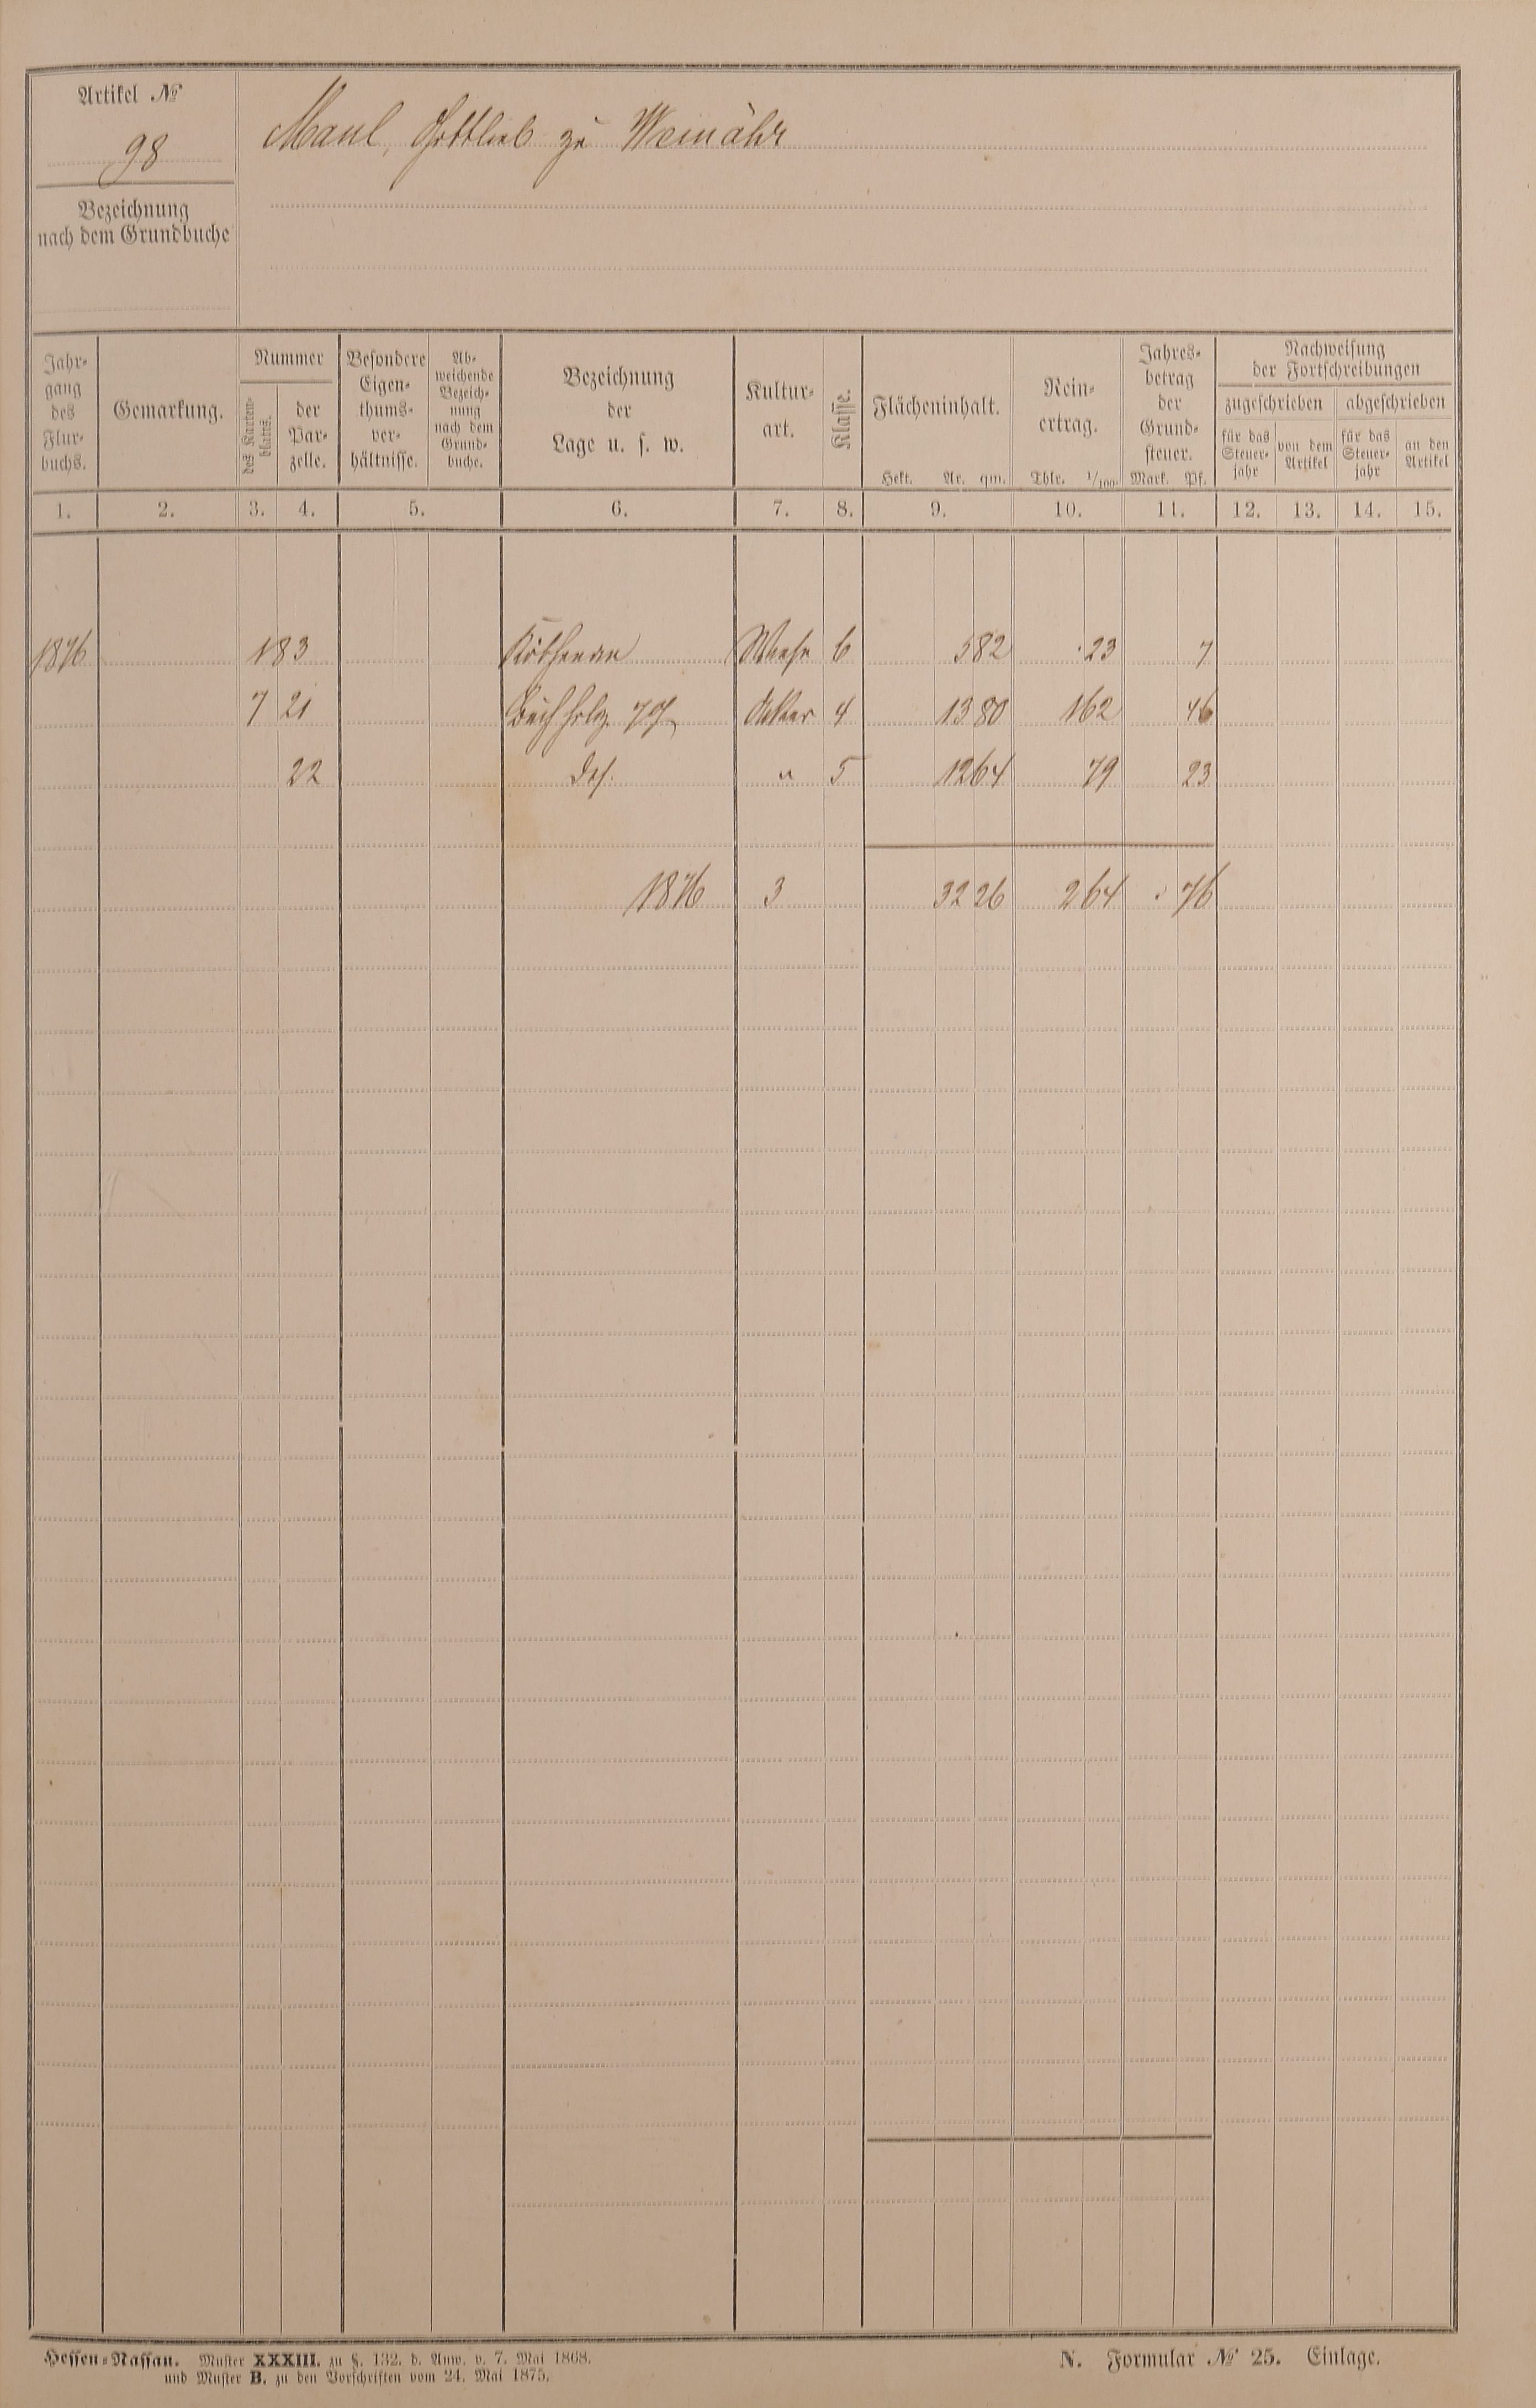 Artikel №
98
Maul, Gottlieb zu Weinähr
Bezeichnung
nach dem Grundbuche
Jahr-
gang
des
Flur-
buchs.
Gemarkung.
Nummer
des Karten-
blatts.
der
Par-
zelle.
Besondere
Eigen-
thums-
ver-
hältnisse.
Ab-
weichende
Bezeich-
nung
nach dem
Grund-
buche.
Bezeichnung
der
Lage u. s. w.
Kultur-
art.
Klasse.
Flächeninhalt.
Hekt. Ar. qm.
Rein-
ertrag.
Thlr. 1/100.
Jahres-
betrag
der
Grund-
steuer.
Mark. Pf.
Nachweisung
der Fortschreibungen
zugeschrieben abgeschrieben
für das
Steuer-
jahr
von dem
Artikel
für das
Steuer-
jahr
an den
Artikel
1. 2. 3. 4. 5. 6. 7. 8. 9. 10. 11. 12. 13. 14. 15.
1876 1 83 Wiese 6 5 82 23 7
7 21 Buchholz Acker 4 13 80 1 62 46
22 das. " 5 12 64 79 23
1876 3 32 26 2 64 76
Hessen-Nassau. Muster XXXIII. zu §. 132. d. Anw. v. 7. Mai 1868.
und Muster B. zu den Vorschriften vom 24. Mai 1875.
N. Formular № 25. Einlage.